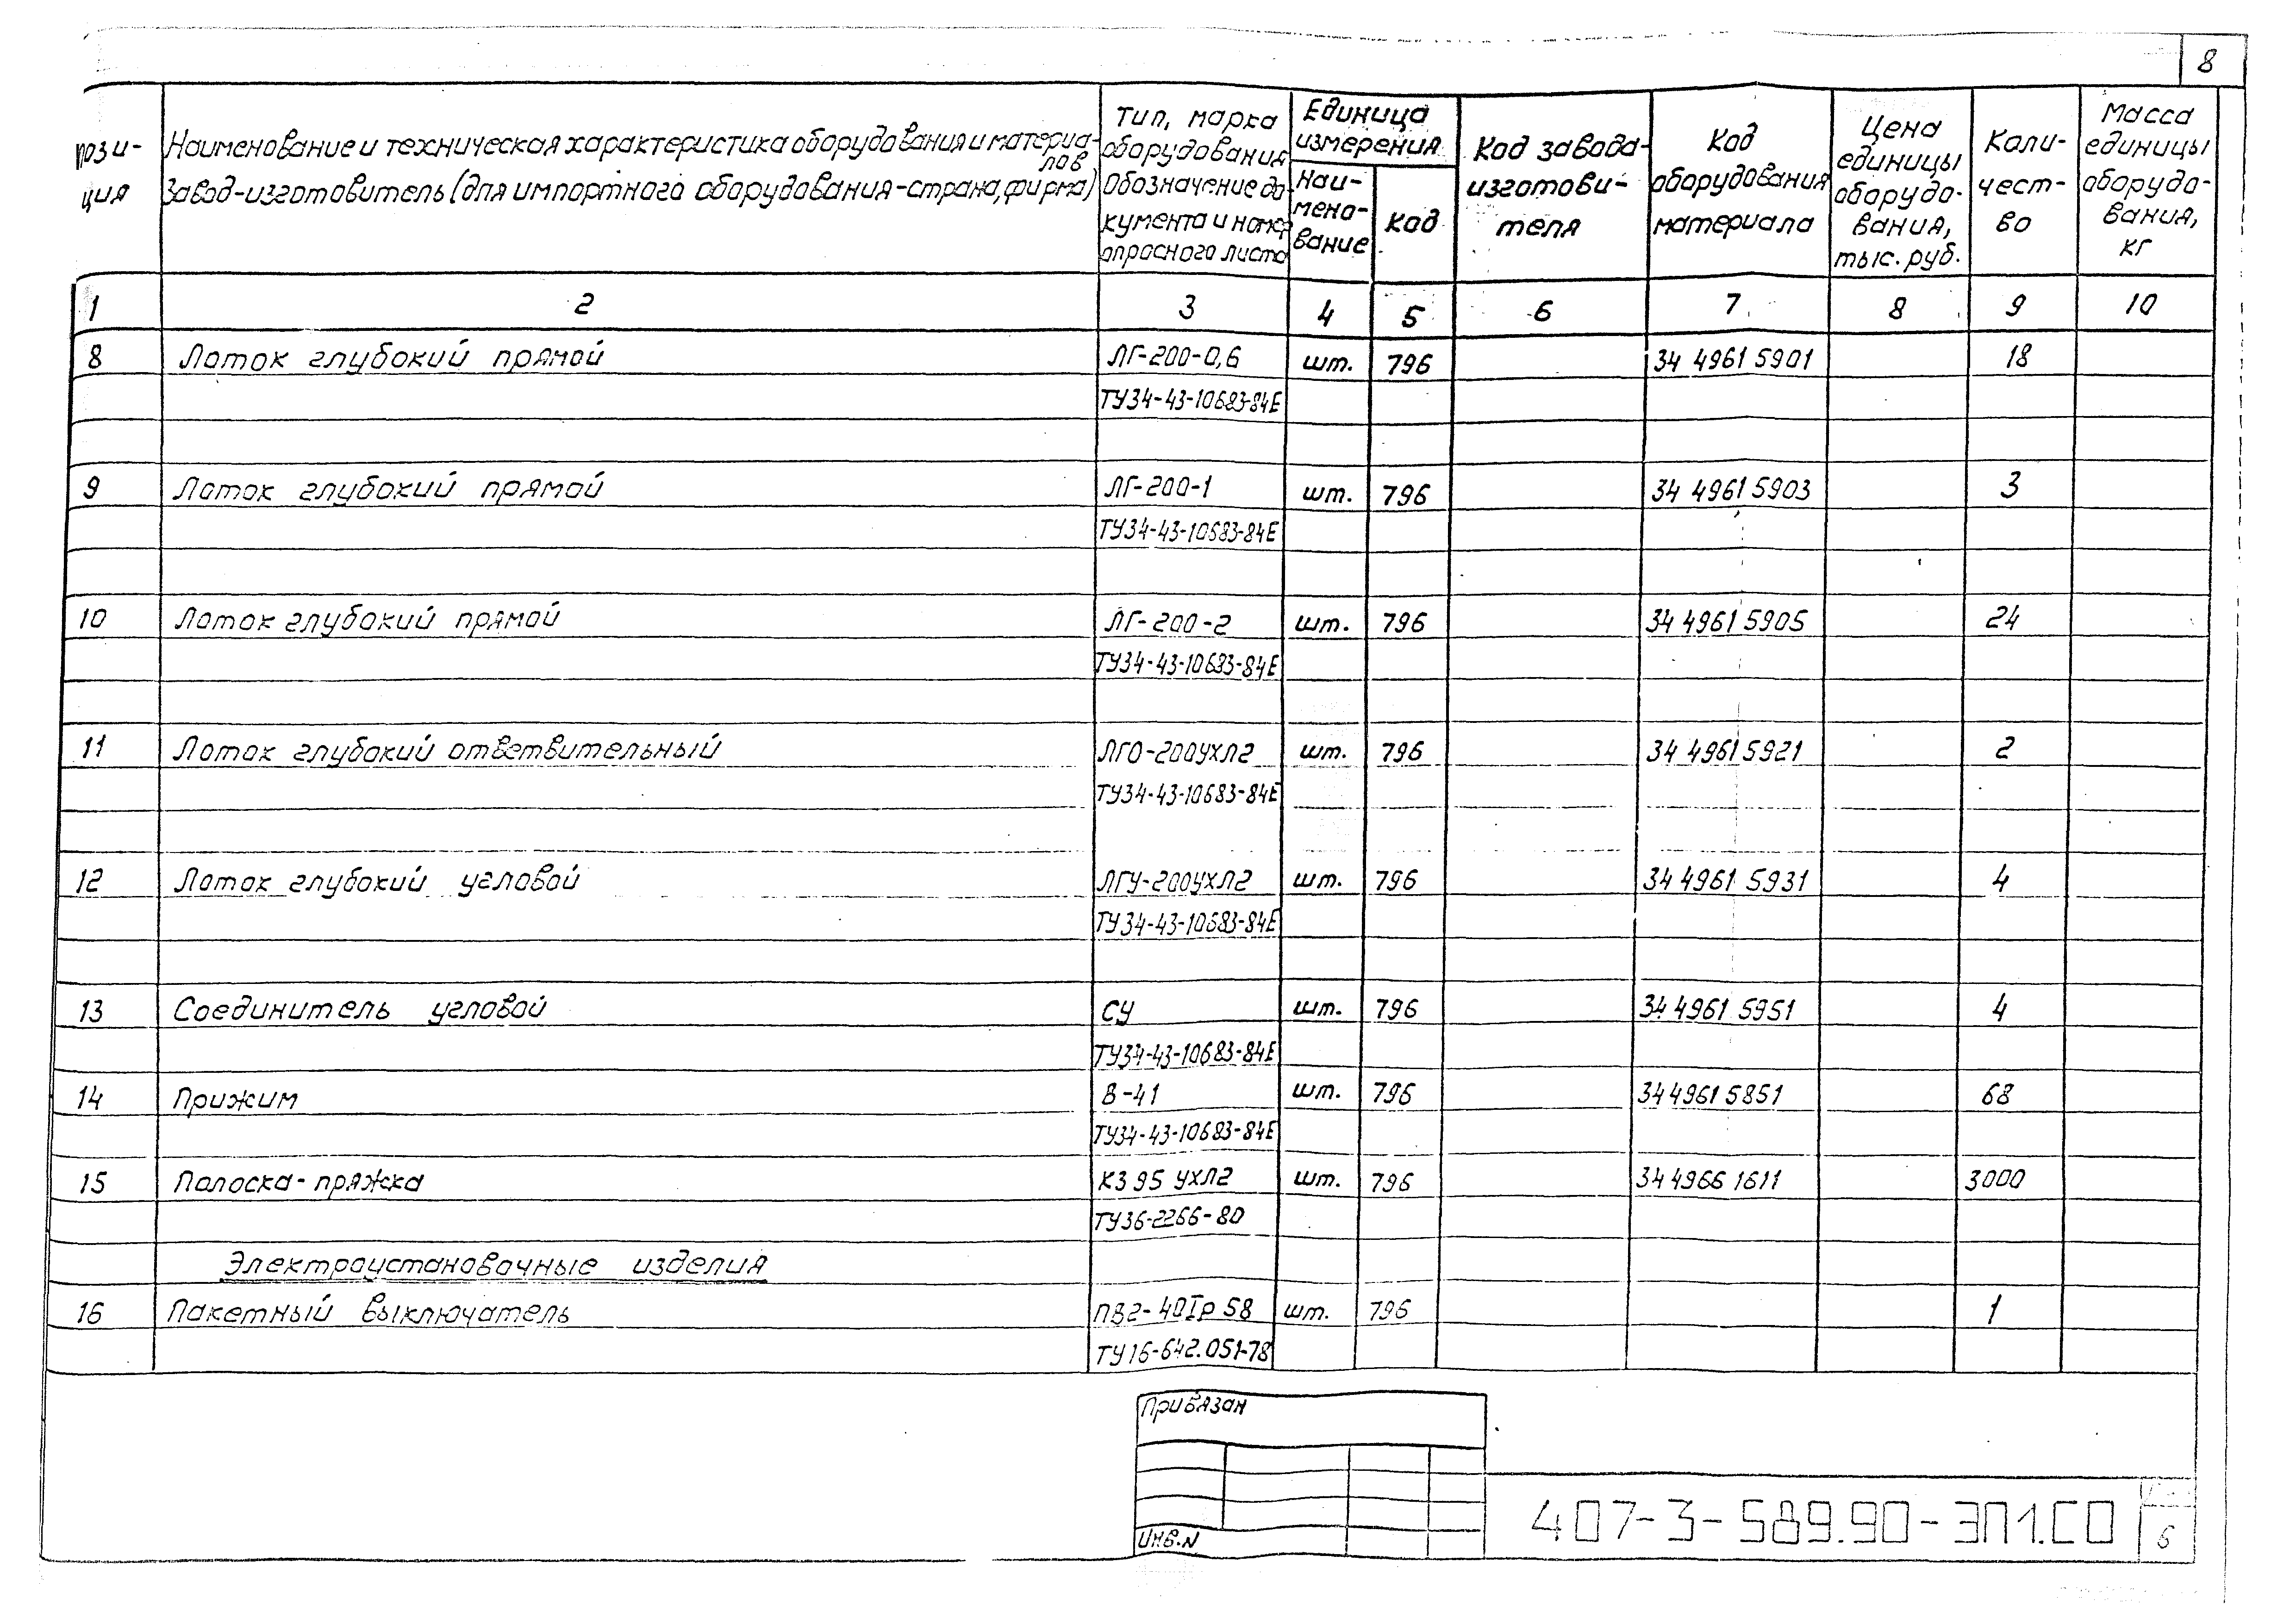 8
пози-
ция
Наименование и техническая характеристика оборудования и материа-
лов
Завод-изготовитель (для импортного оборудования-страна, фирма)
Тип, марка
оборудования
Обозначение до
кумента и номер
опросного листа
Единица
измерения
Наи-
мено-
вание
код
Код завода-
изготови-
теля
Код
оборудования
материала
Цена
единицы
оборудо-
вания,
тыс. руб.
Коли-
чест-
во
Масса
единицы
оборудо-
вания,
кг
1 2 3 4 5 6 7 8 9 10
8 Лоток глубокий прямой ЛГ-200-0,6 шт. 796 34 4961 5901 18
ТУ34-43-10683-84Е
9 Лоток глубокий прямой ЛГ-200-1 шт. 796 34 4961 5903 3
ТУ34-43-10683-84Е
10 Лоток глубокий прямой ЛГ-200-2 шт. 796 34 4961 5905 24
ТУ34-43-10683-84Е
11 Лоток глубокий ответвительный ЛГО-200УХЛ2 шт. 796 34 4961 5921 2
ТУ34-43-10683-84Е
12 Лоток глубокий угловой ЛГУ-200УХЛ2 шт. 796 34 4961 5931 4
ТУ34-43-10683-84Е
13 Соединитель угловой СУ шт. 796 34 4961 5951 4
ТУ34-43-10683-84Е
14 Прижим В-41 шт. 796 34 4961 5851 68
ТУ34-43-10683-84Е
15 Полоска-пряжка К395 УХЛ2 шт. 796 34 4966 1611 3000
ТУ36-2266-80
Электроустановочные изделия
16 Пакетный выключатель ПВ2-40Iр 58 шт. 796 1
ТУ16-642.051-78
Привязан
Инв.N
407-3-589.90-ЭП1.СО
6